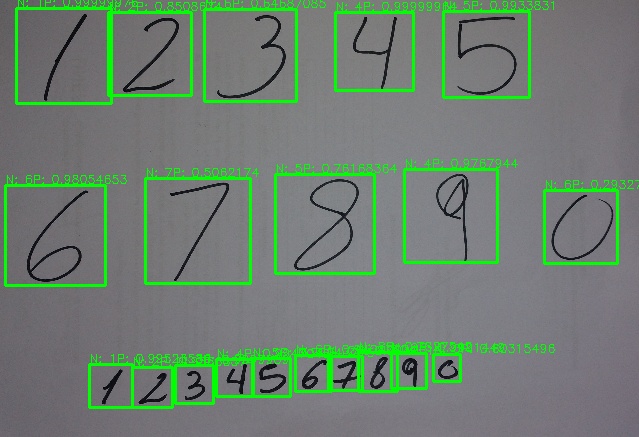 N: 1P: 0.99999976 N: 2P: 0.8508 N: 5P: 0.64687085 N: 4P: 0.9999999 N: 5P: 0.9933831
1 2 3 4 5
N: 6P: 0.98054653 N: 7P: 0.5062174 N: 5P: 0.76168364 N: 4P: 0.9767944 N: 6P: 0.29327
6 7 8 9 0
N: 1P: 0.99525586
1 2 3 4 5 6 7 8 9 0